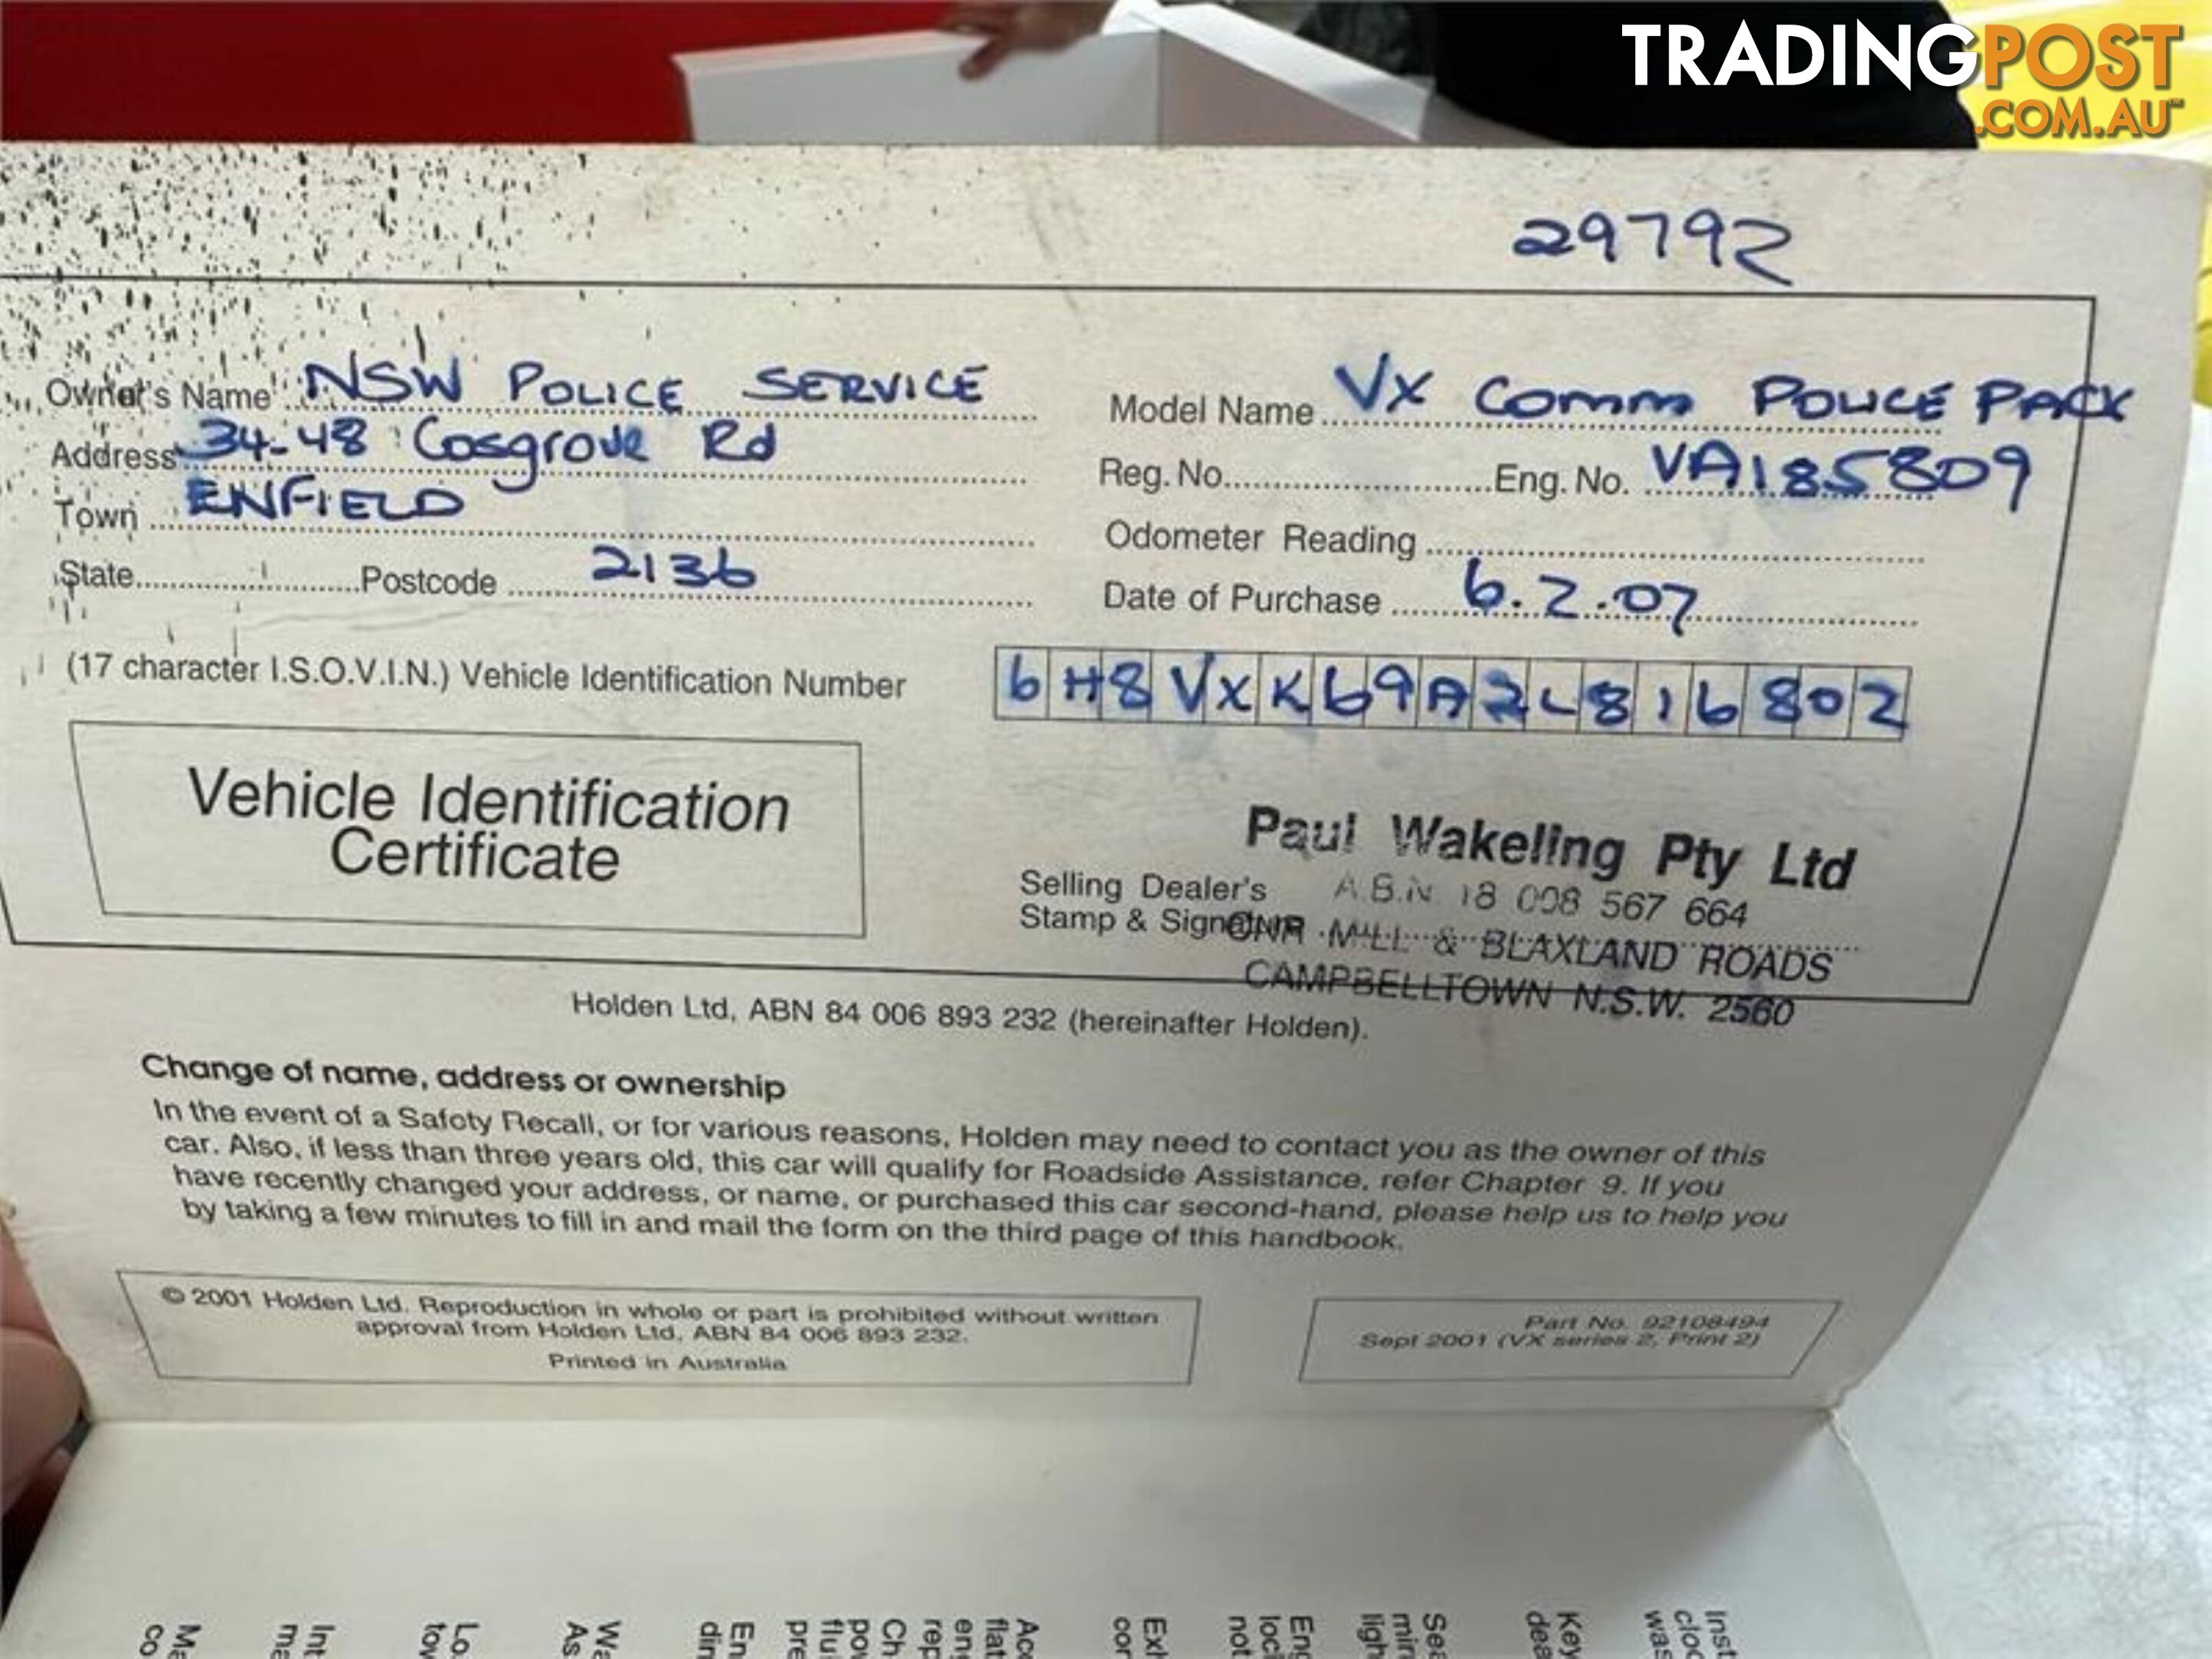 TRADINGPOST
.COM.AU™
29792
Owner's Name NSW POLICE SERVICE
Address 34-48 Cosgrove Rd
Town ENFIELD
State Postcode 2136
Model Name VX Comm POLICE PACK
Reg. No. Eng. No. VA185809
Odometer Reading
Date of Purchase 6.2.07
(17 character I.S.O.V.I.N.) Vehicle Identification Number 6H8VXK69A2L816802
Vehicle Identification
Certificate
Paul Wakeling Pty Ltd
Selling Dealer's A.B.N. 18 008 567 664
Stamp & Signature CNR MILL & BLAXLAND ROADS
CAMPBELLTOWN N.S.W. 2560
Holden Ltd, ABN 84 006 893 232 (hereinafter Holden).
Change of name, address or ownership
In the event of a Safety Recall, or for various reasons, Holden may need to contact you as the owner of this
car. Also, if less than three years old, this car will qualify for Roadside Assistance, refer Chapter 9. If you
have recently changed your address, or name, or purchased this car second-hand, please help us to help you
by taking a few minutes to fill in and mail the form on the third page of this handbook.
© 2001 Holden Ltd. Reproduction in whole or part is prohibited without written
approval from Holden Ltd, ABN 84 006 893 232.
Printed in Australia
Part No. 92108494
Sept 2001 (VX series 2, Print 2)